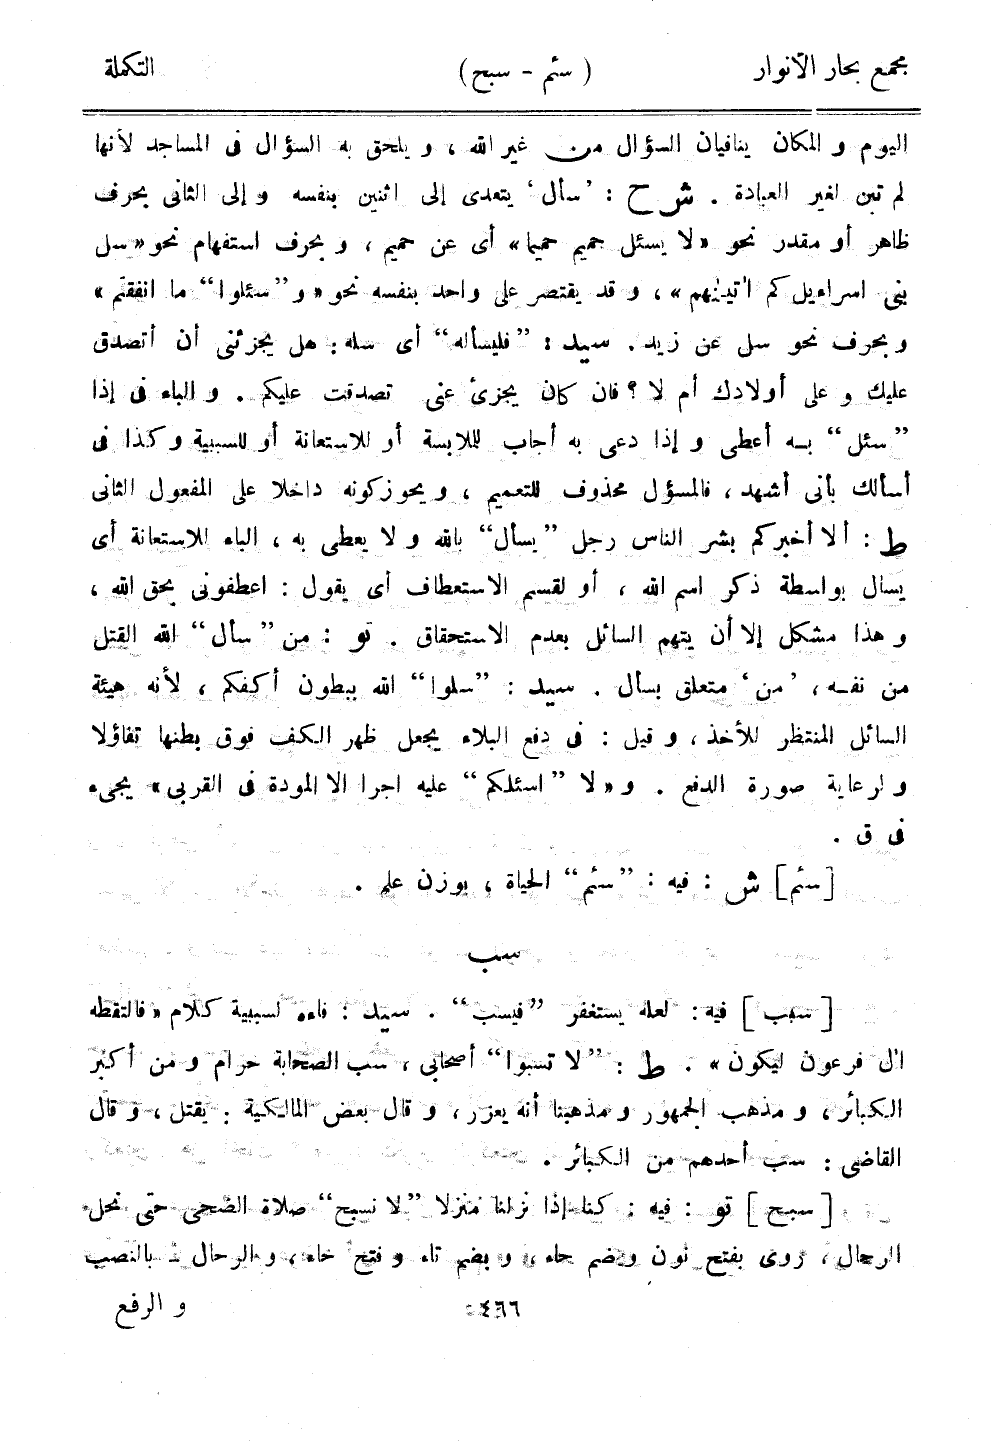 مجمع بحار الأنوار ( سئم - سبح ) التكملة
اليوم و المكان ينافيان السؤال من غير الله ، و يلحق به السؤال فى المساجد لأنها
لم تبن لغير العبادة . ش ح : ’سأل‘ يتعدى إلى اثنين بنفسه و إلى الثانى بحرف
ظاهر أو مقدر نحو « لا يسئل حميم حميما » أى عن حميم ، و بحرف استفهام نحو « سل
بنى اسراءيل كم اٰتينٰهم » ، و قد يقتصر على واحد بنفسه نحو « و ”سئلوا“ ما انفقتم »
و بحرف نحو سل عن زيد . سيد : ”فليسأله“ أى سله : هل يجزئنى أن أتصدق
عليك و على أولادك أم لا ؟ فان كان يجزئ عنى تصدقت عليكم . و الباء فى إذا
”سئل“ بـه أعطى و إذا دعى به أجاب للملابسة أو للاستعانة أو للسببية و كذا فى
أسألك بأنى أشهد ، فالمسؤل محذوف للتعميم ، و يحوز كونه داخلا على المفعول الثانى
ط : ألا أخبركم بشر الناس رجل ”يسأل“ بالله و لا يعطى به ، الباء للاستعانة أى
يسال بواسطة ذكر اسم الله ، أو لقسم الاستعطاف أى يقول : اعطفونى بحق الله ،
و هذا مشكل إلا أن يتهم السائل بعدم الاستحقاق . تو : من ”سأل“ الله القتل
من نفسه ، ’من‘ متعلق بسأل . سيد : ”سلوا“ الله ببطون أكفكم ، لأنه هيئة
السائل المنتظر للأخذ ، و قيل : فى دفع البلاء يجعل ظهر الكف فوق بطنها تفاؤلا
و لرعاية صورة الدفع . و « لا ”اسئلكم“ عليه اجرا الا المودة فى القربى » يجىء
فى ق .
[سئم] ش : فيه : ”سئم“ الحياة ، بوزن علم .
سب
[سبب] فيه : لعله يستغفر ”فيسب“ . سيد : فاءه لسببية كلام « فالتقطه
اٰل فرعون ليكون » . ط : ”لا تسبوا“ أصحابى ، سب الصحابة حرام و من أكبر
الكبائر ، و مذهب الجمهور و مذهبنا أنه يعزر ، و قال بعض المالكية : يقتل ، و قال
القاضى : سب أحدهم من الكبائر .
[سبح] تو : فيه : كنا إذا نزلنا منزلا ”لا نسبح“ صلاة الضحى حتى نحل
الرحال ، روى بفتح نون و ضم حاء ، و بضم تاء و فتح خاء ، و الرحال : بالنصب
٤٦٦ و الرفع